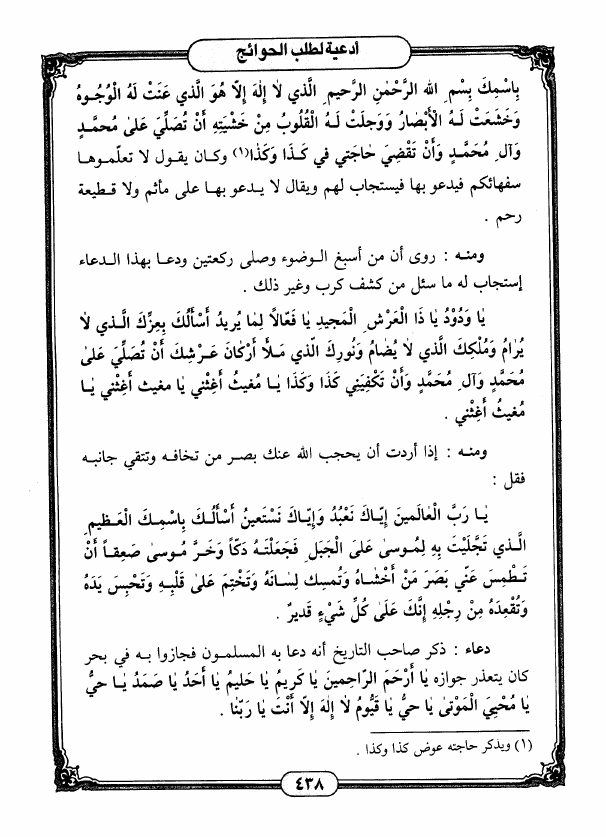 أدعية لطلب الحوائج
بِاسْمِكَ بِسْمِ اللهِ الرَّحْمٰنِ الرَّحيمِ الَّذي لاٰ إِلٰهَ إِلاّ هُوَ الَّذي عَنَتْ لَهُ الْوُجُوهُ
وَخَشَعَتْ لَـهُ الأَبْصٰارُ وَوَجلَتْ لَـهُ الْقُلُوبُ مِنْ خَشْيَتِهِ أَنْ تُصَلِّيَ عَلىٰ مُحَمَّدٍ
وَآلِ مُحَمَّدٍ وَأَنْ تَقْضِيَ حٰاجَتي في كَذٰا وَكَذٰا(١) وكان يقول لا تعلّموها
سفهائكم فيدعو بها فيستجاب لهم ويقال لا يـدعو بهـا على مأثم ولا قـطيعة
رحم .
ومنـه : روى أن من أسبغ الـوضوء وصلى ركعتين ودعـا بهذا الـدعاء
إستجاب له ما سئل من كشف كرب وغير ذلك .
يٰا وَدُودُ يٰا ذَا الْعَرْشِ الْمَجيدِ يٰا فَعّالاً لِمٰا يُريدُ أَسْأَلُكَ بِعِزِّكَ الَّـذي لاٰ
يُرٰامُ وَمُلْكِكَ الَّذي لاٰ يُضٰامُ وَنُورِكَ الَّذي مَـلأَ أَرْكٰانَ عَـرْشِكَ أَنْ تُصَلِّيَ عَلىٰ
مُحَمَّدٍ وَآلِ مُحَمَّدٍ وَأَنْ تَكْفِيَني كَذٰا وَكَذٰا يٰـا مُغيثُ أَغِثْني يٰا مغيث أَغِثْني يٰـا
مُغيثُ أَغِثْني .
ومنـه : إذا أردت أن يحجب الله عنك بصـر من تخافـه وتتقي جانبـه
فقل :
يٰـا رَبَّ الْعٰالَمينَ إِيّٰاكَ نَعْبُدُ وَإِيّٰاكَ نَسْتَعينُ أَسْأَلُـكَ بِاسْمِـكَ الْعَـظيمِ
الَّـذي تَجَلَّيْتَ بِهِ لِمُوسىٰ عَلىٰ الْجَبَلِ فَجَعَلْتَـهُ دَكّـاً وَخَـرَّ مُـوسىٰ صَعِقـاً أَنْ
تَـطْمِسَ عَنّي بَصَرَ مَنْ أَخْشٰاهُ وَتُمسِكَ لِسٰانَهُ وَتَخْتِمَ عَلىٰ قَلْبِـهِ وَتَحْبِسَ يَدَهُ
وَتُقْعِدَهُ مِنْ رِجْلِهِ إِنَّكَ عَلَىٰ كُلِّ شَيْءٍ قَديرٌ .
دعاء : ذكر صاحب التاريخ أنه دعا به المسلمـون فجازوا بـه في بحر
كان يتعذر جوازه يٰا أَرْحَمَ الرّٰاحِمينَ يٰا كَريمُ يٰا حَليمُ يٰا أَحَدُ يٰا صَمَدُ يٰـا حيُّ
يٰا مُحْيِيَ الْمَوْتىٰ يٰا حيُّ يٰا قَيُّومُ لاٰ إِلٰهَ إِلاّ أَنْتَ يٰا رَبَّنٰا .
(١) ويذكر حاجته عوض كذا وكذا .
٤٣٨